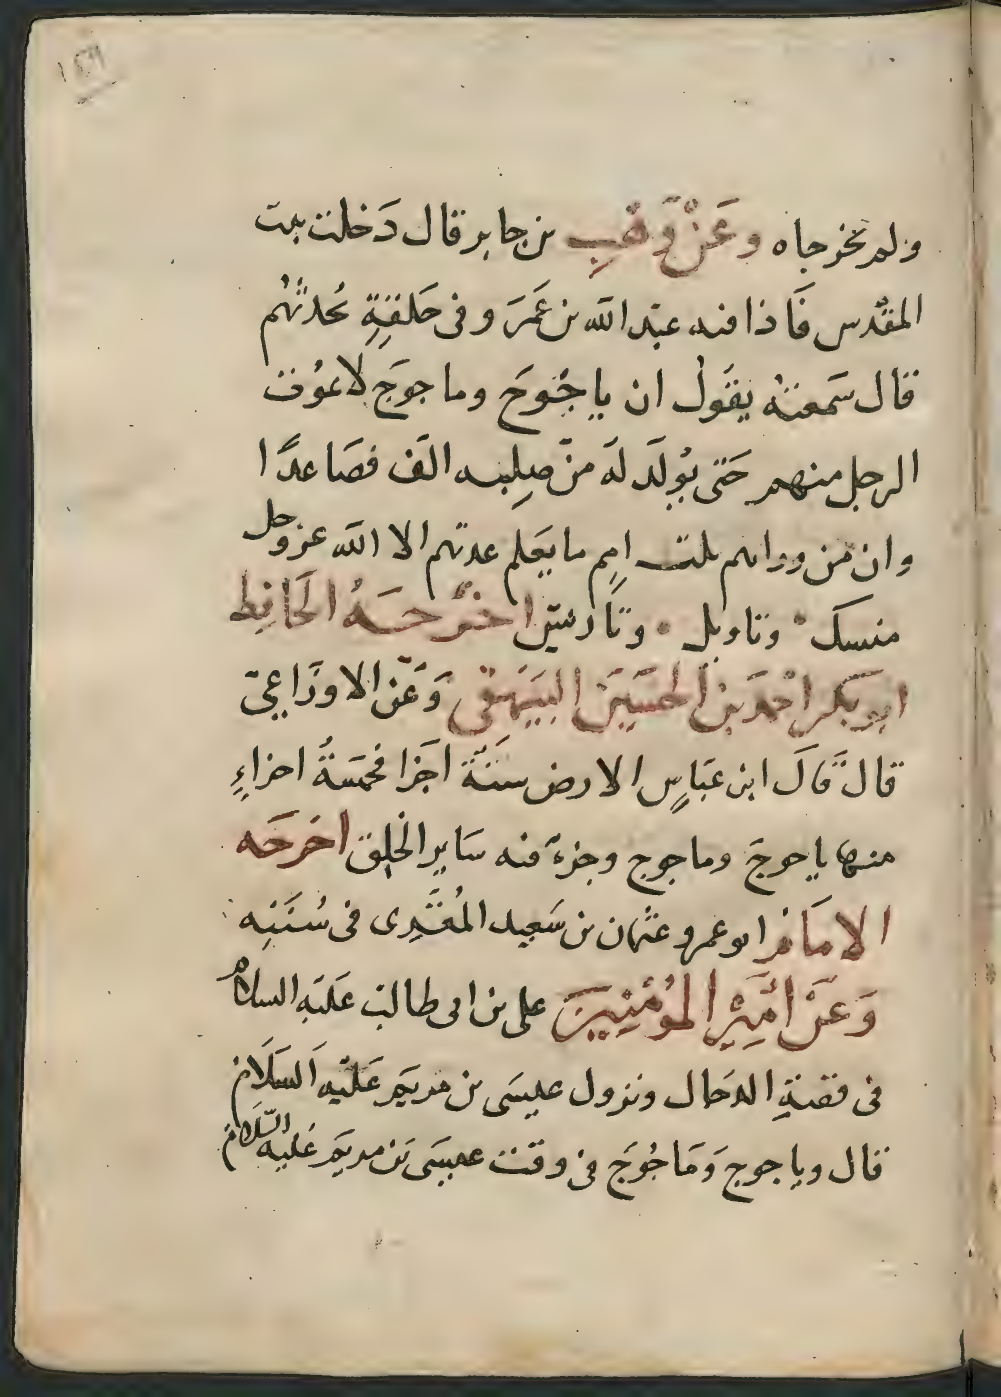 ١٤٩
ولم يخرجاه وعن وهب بن جابر قال دخلت بيت
المقدس فاذا فيه عبد الله بن عمر وفي حلقةٍ يحدثهم
قال سمعته يقول ان ياجوج وماجوج لا يموت
الرجل منهم حتى يولد له من صلبه الف فصاعدًا
وان من ورائهم ثلث امم ما يعلم عدتهم الا الله عز وجل
منسك وتاويل وتاريس اخرجه الحافظ
ابو بكر احمد بن الحسين البيهقي وعن الاوزاعي
قال قال ابن عباس الارض ستة اجزا فخمسة اجزاءٍ
منها ياجوج وماجوج وجزء فيه ساير الخلق اخرجه
الامام ابو عمرو عثمان بن سعيد المقري في سننه
وعن امير المؤمنين علي بن ابي طالب عليه السلام
في فتنة الدجال ونزول عيسى بن مريم عليه السلام
قال وياجوج وماجوج في وقت عيسى بن مريم عليه السلام